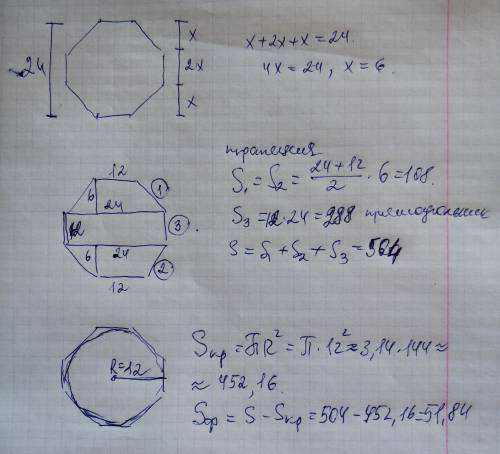 24
x
2x
x
x + 2x + x = 24.
4x = 24, x = 6.
трапеция
12
1
6
24
12
3
6
24
2
12
S₁ = S₂ = (24+12)/2 · 6 = 108.
S₃ = 12·24 = 288 прямоугольник
S = S₁ + S₂ + S₃ = 504
R=12
Sкр = ПR² = П·12² ≈ 3,14·144 ≈
≈ 452,16.
Sор = S − Sкр = 504 − 452,16 = 51,84